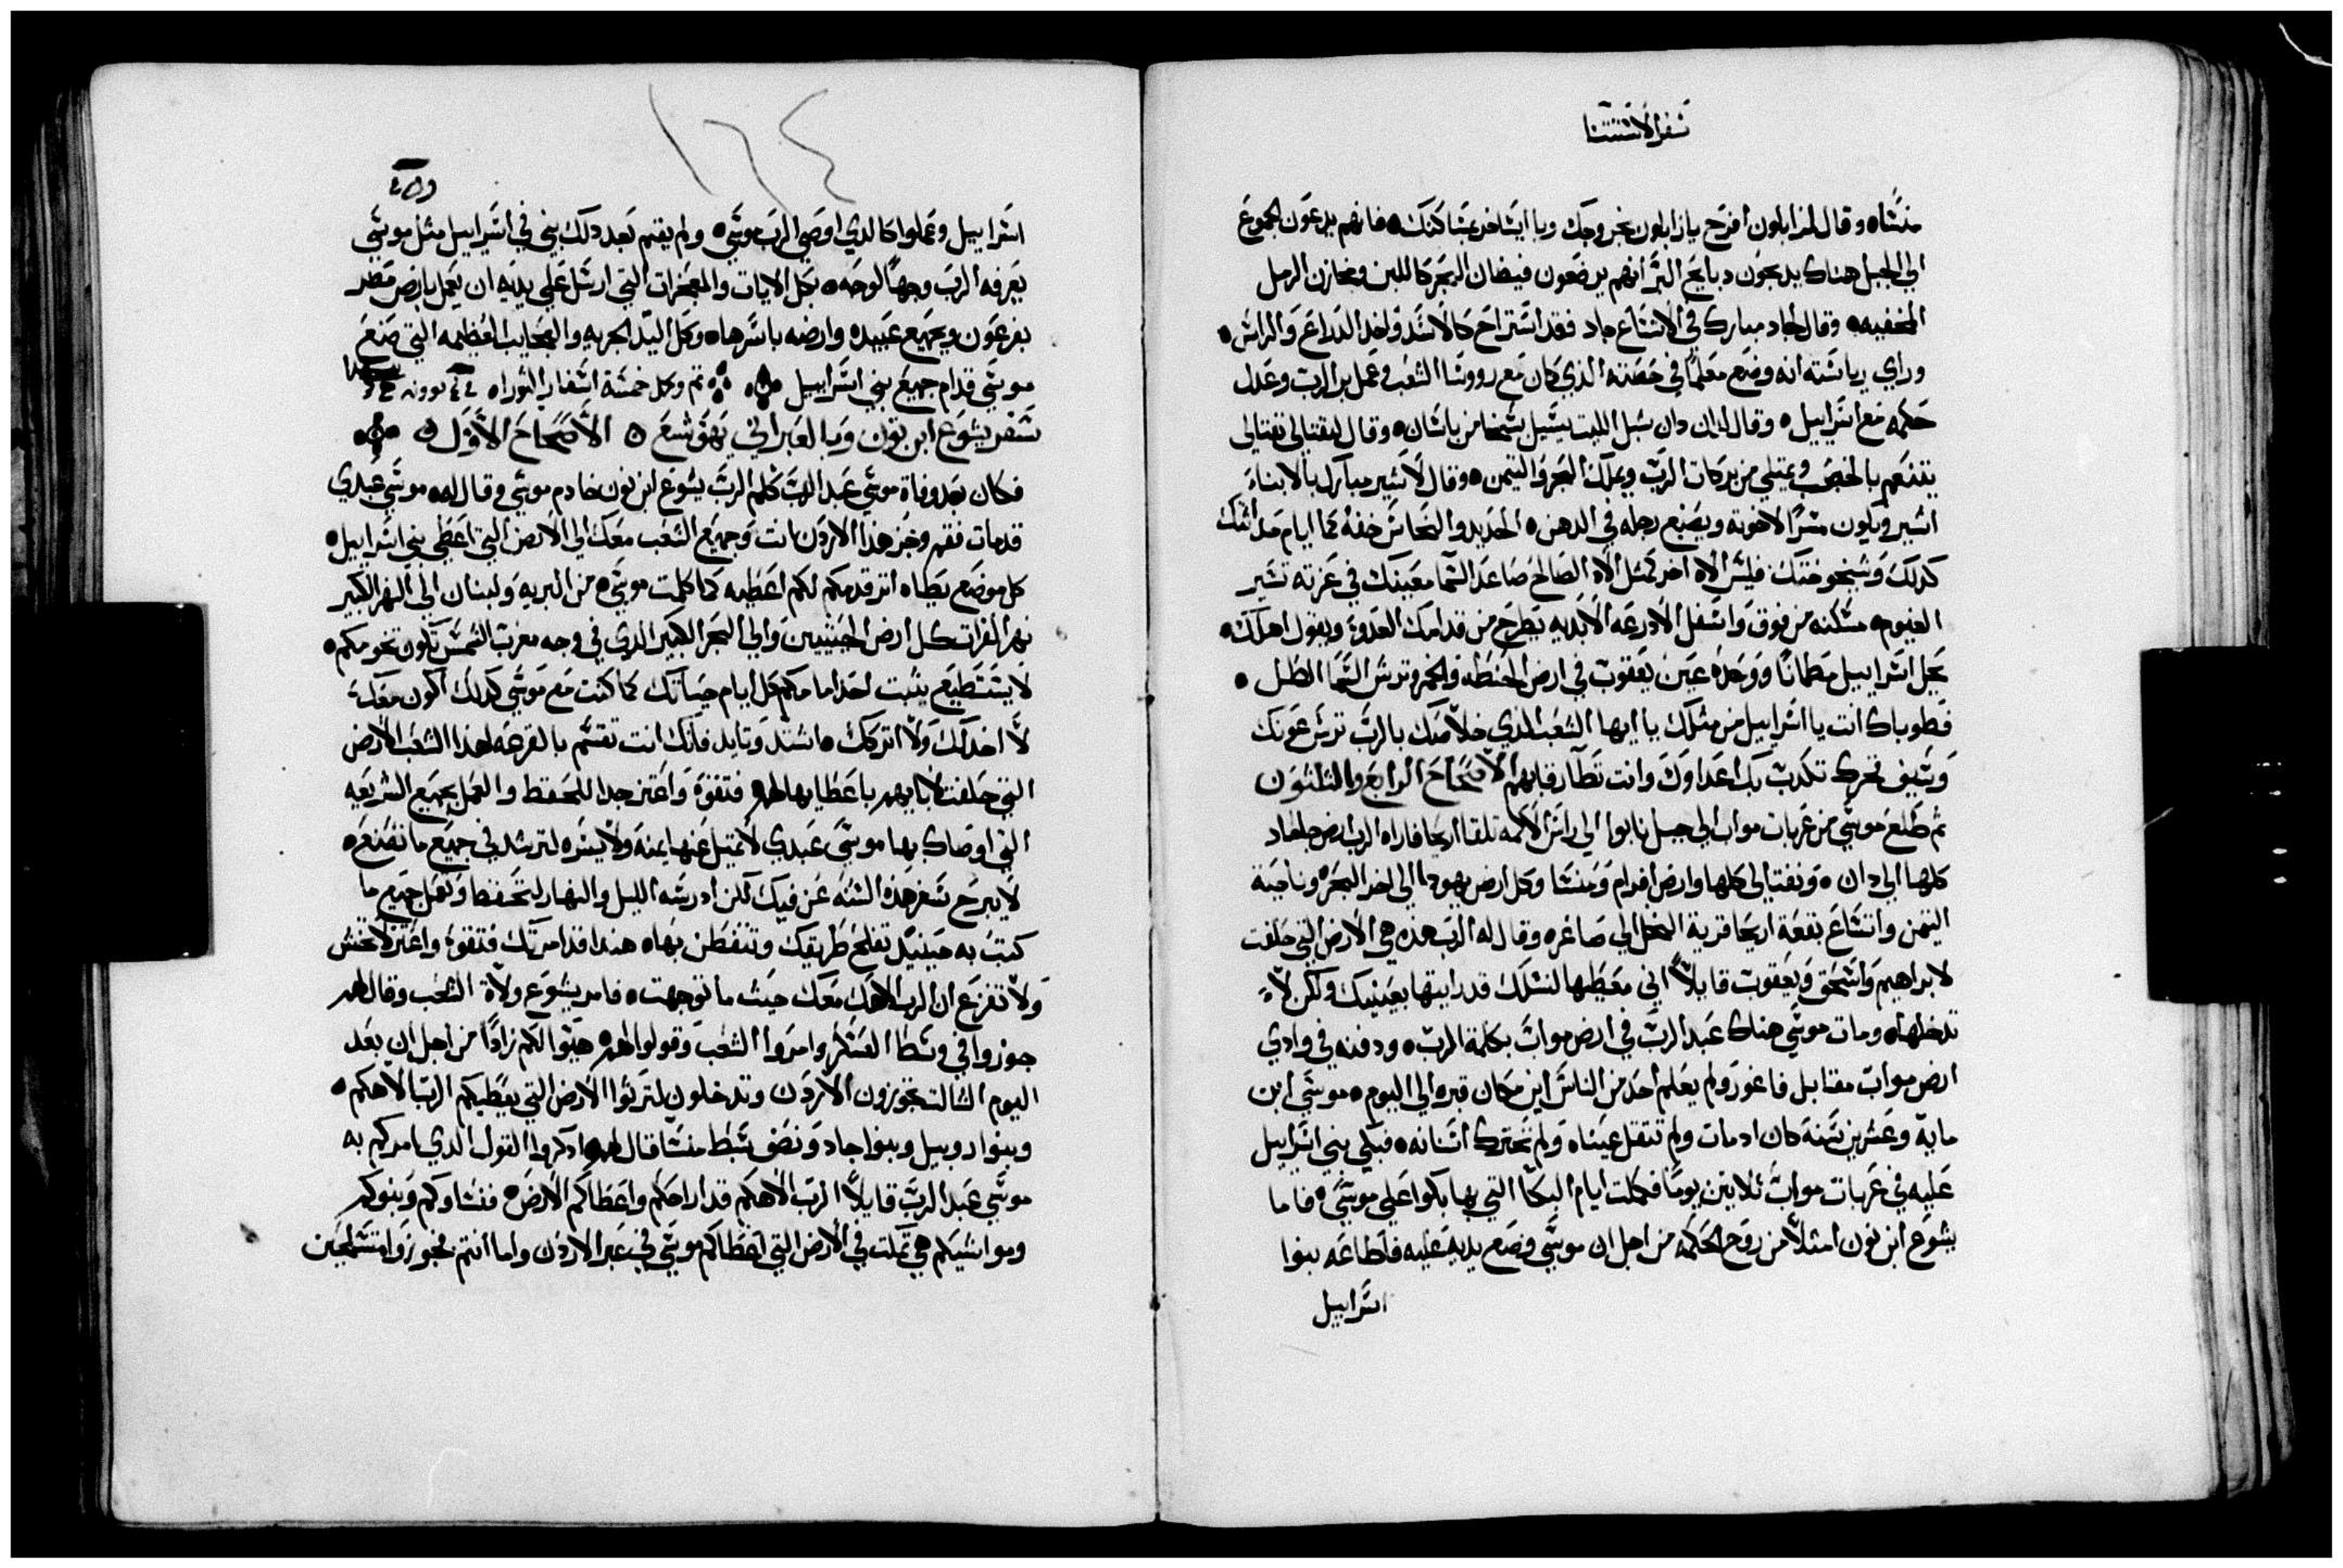 سفر الاستثنا
منشاه وقال لزابلون افرح يا زابلون بخروجك ويا ايساخر بمساكنك فانهم يدعون الجموع
الي الجبل هناك يدبحون دبايح البر انهم يرضعون فيضان البحر كاللبن ومخازن الرمل
المخفيه وقال لجاد مبارك في الاتساع جاد فقد استراح كالاسد واخد الدراع والراس
وراي رياسته انه وضع معلما في حصته الذي كان مع رووسا الشعب وعمل بر الرب وعدل
حكمه مع اسراييل وقال لدان دان شبل الليث يسيل بسخا من باشان وقال لنفتالي نفتالي
يتنعم بالخصب ويمتلي من بركات الرب ويملك البحر واليمن وقال لاشير مبارك بالابناء
اشير ويكون مسرا لاخوته ويصبغ رجله في الدهن الحديد والنحاس خفه كما ايام حداثتك
كدلك وشيخوختك فليس الاه اخر كمثل الاه الصالح صاعد السما معينك في عزته تسير
الغيوم مسكنه من فوق واسفل الادرعه الابديه يطرح من قدامك العدو ويقول اهلك
يحل اسراييل مطمانا ووحده عين يعقوب في ارض الحنطه والخمر وترش السما الطل
فطوباك انت يا اسراييل من مثلك يا ايها الشعب الذي خلاصك بالرب ترس عونك
وسيف فخرك تكدب بك اعداوك وانت تطا رقابهم الاصحاح الرابع والثلثون
ثم طلع موسي من عربات مواب الي جبل نابوا الي راس الاكمه تلقا اريحا فاراه الرب ارض جلعاد
كلها الي دان ونفتالي كلها وارض افرام ومنشا وكل ارض يهودا الي اخر البحر وناحية
اليمن واتساع بقعة اريحا قرية النخل الي صاغره وقال له الرب هده هي الارض التي حلفت
لابراهيم واسحق ويعقوب قايلاً اني معطيها لنسلك قد رايتها بعينيك ولكن لا
تدخلها ومات موسي هناك عبد الرب في ارض مواب بكلمة الرب ودفنه في وادي
ارض مواب مقابل فاغور ولم يعلم احد من الناس اين مكان قبره الي اليوم موسي ابن
ماية وعشرين سنة كان اد مات ولم تتقل عيناه ولم تتحرك اسنانه فبكي بني اسراييل
عليه في عربات مواب ثلاتين يوما فكملت ايام البكا التي بها بكوا علي موسي فاما
يشوع ابن نون امتلا من روح الحكمه من اجل ان موسي وضع يديه عليه فاطاعه بنوا
اسراييل
١٦٤
اسراييل وعملوا كالدي اوصي الرب موسي ولم يقم بعد دلك نبي في اسراييل مثل موسي
يعرفه الرب وجهاً لوجه بكل الايات والمعجزات التي ارسل علي يديه ان يعمل بارض مصر
بفرعون وبجميع عبيده وارضه باسرها وكل اليد الجريه والعجايب العظيمه التي صنع
موسي قدام جميع بني اسراييل تم وكمل خمسة اسفار التوراه
سفر يشوع ابن نون وبالعبراني يهوشع الاصحاح الاول
فكان بعد وفاة موسي عبد الرب كلم الرب يشوع ابن نون خادم موسي وقال له موسي عبدي
قد مات فقم وجز هدا الاردن انت وجميع الشعب معك الي الارض التي اعطي بني اسراييل
كل موضع يطاه اتر قدمكم لكم اعطيه كما كلمت موسي من البريه ولبنان الي النهر الكبير
نهر الفرات كل ارض الحيثيين والي البحر الكبير الدي في وجه مغرب الشمس تكون تخومكم
لا يستطيع يثبت احد امامكم كل ايام حياتك كما كنت مع موسي كدلك اكون معك
لا اخدلك ولا اتركك اشتد وتايد فانك انت تقسم بالقرعه لهدا الشعب الارض
التي حلفت لابايهم باعطايها لهم فتقوه واعتز جدا لتحفط والعمل بجميع الشريعه
التي اوصاك بها موسي عبدي لا تميل عنها يمنه ولا يسره لترشد في جميع ما تصنع
لا يبرح سفر هده السنه عن فيك لكن ادرسه الليل والنهار لتحفط وتعمل جميع ما
كتب به حينيد تفلح طريقك وتتفطن بها هندا قد امرتك فتقوه واعتز لا تخش
ولا تفزع ان الرب الاهك معك حيث ما توجهت فامر يشوع ولاة الشعب وقال لهم
جوزوا في وسط العسكر وامروا الشعب وقولوا لهم هيوا لكم زاداً من اجل ان بعد
اليوم الثالت تجوزون الاردن وتدخلون لترثوا الارض التي يعطيكم الرب الاهكم
وبنوا روبيل وبنوا جاد ونصف سبط منشا قال لهم ادكروا القول الدي امركم به
موسي عبد الرب قايلاً الرب الاهكم قد اراحكم واعطاكم الارض فنساوكم وبنوكم
ومواشيكم هي تمكت في الارض التي اعطاكم موسي في عبر الاردن واما انتم فجوزوا متسلحين